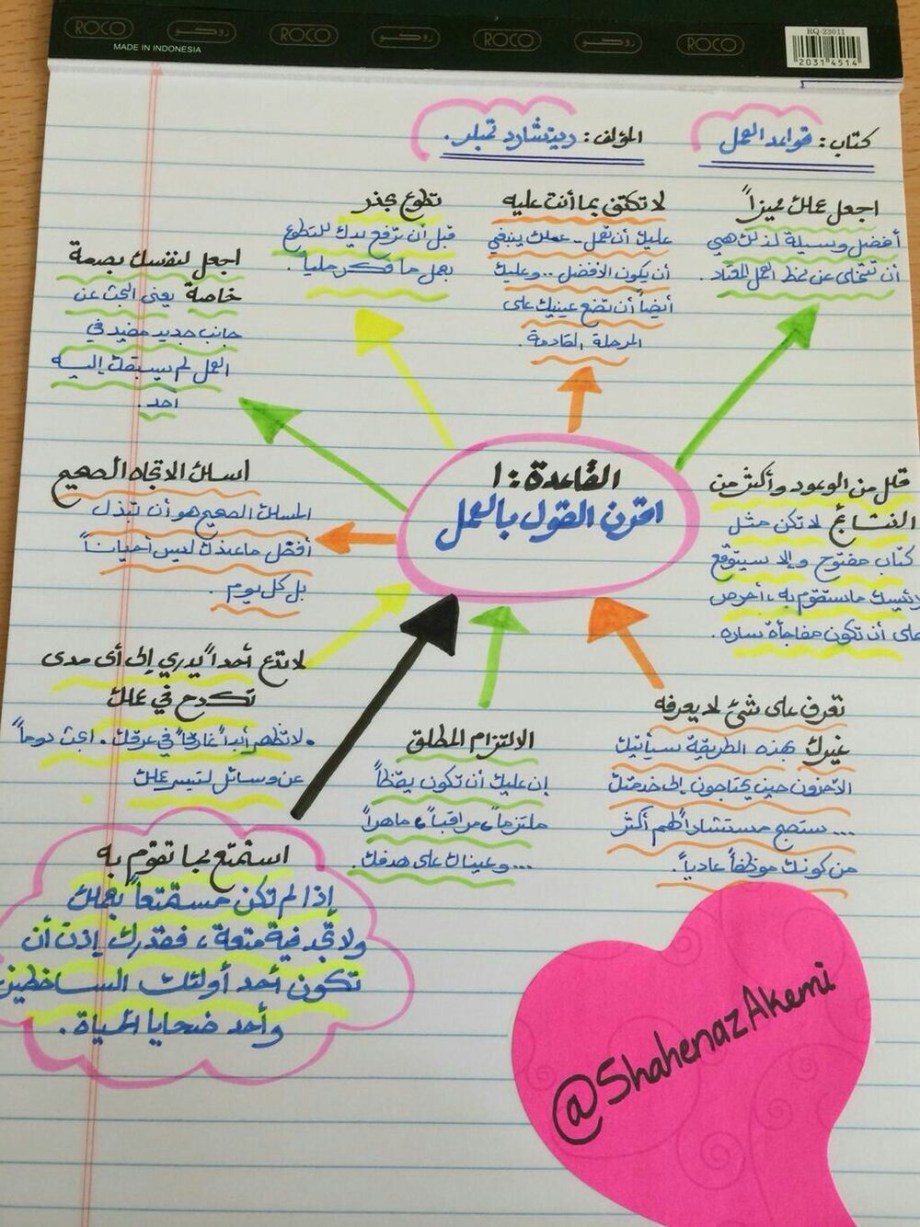 ROCO روكو ROCO روكو ROCO روكو ROCO
MADE IN INDONESIA
RQ-23011
2031 4514
كتاب: قواعد العمل
المؤلف: ريتشارد تمبلر.
اجعل عملك مميزاً
أفضل وسيلة لذلك هي
أن تتخلى عن نمط العمل المعتاد.
لا تكتفي بما أنت عليه
عليك أن تعمل.. عملك ينبغي
أن يكون الأفضل.. وعليك
أيضاً أن تضع عينيك على
المرحلة القادمة.
تطوع بحذر
قبل أن ترفع يدك للتطوع
بعمل ما فكر جلياً.
اجعل لنفسك بصمة
خاصة يعني البحث عن
جانب جديد مفيد في
العمل لم يسبقك إليه
أحد.
القاعدة: ١
اقرن القول بالعمل
قلل من الوعود وأكثر من
النتائج لا تكن مثل
كتاب مفتوح وإلا سيتوقع
رئيسك ما ستقوم به، احرص
على أن تكون مفاجأة سارة.
اسلك الاتجاه الصحيح
المسلك الصحيح هو أن تبذل
أفضل ما عندك ليس أحياناً
بل كل يوم.
لا تدع أحداً يدري إلى أي مدى
تكدح في عملك
. لا تظهر أبداً غارقاً في عرقك. ابحث دوماً
عن وسائل لتيسر عملك
تعرف على شئ لا يعرفه
غيرك بهذه الطريقة سيأتيك
الآخرون حين يحتاجون إلى خدمتك
... ستصبح مستشاراً لهم أكثر
من كونك موظفاً عادياً.
الالتزام المطلق
إن عليك أن تكون يقظاً
ملتزماً، مراقباً، ماهراً
... وعيناك على هدفك.
استمتع بما تقوم به
إذا لم تكن مستمتعاً بعملك
ولا تجد فيه متعة، فقدرك إذن أن
تكون أحد أولئك الساخطين
وأحد ضحايا الحياة.
@ShahenazAkemi